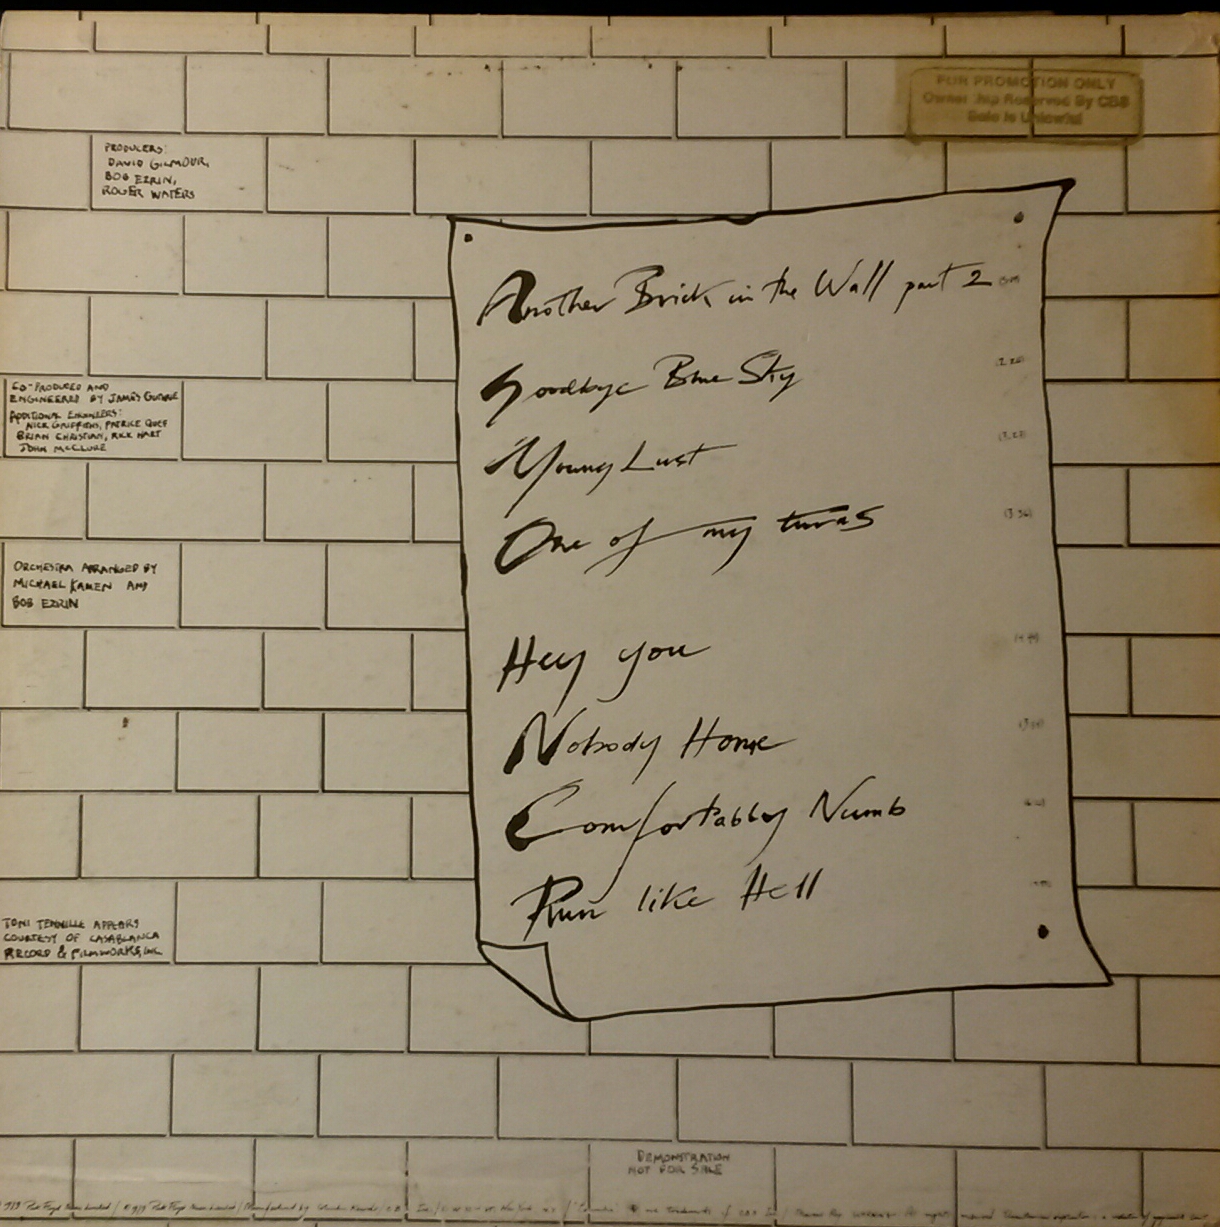 FOR PROMOTION ONLY
Ownership Reserved By CBS
Sale Is Unlawful
PRODUCERS:
DAVID GILMOUR,
BOB EZRIN,
ROGER WATERS
Another Brick in the Wall part 2
Goodbye Blue Sky
CO-PRODUCED AND
ENGINEERED BY JAMES GUTHRIE
ADDITIONAL ENGINEERS:
NICK GRIFFITHS, PATRICE QUEF
BRIAN CHRISTIAN, RICK HART
JOHN McCLURE
Young Lust
One of my turns
ORCHESTRA ARRANGED BY
MICHAEL KAMEN AND
BOB EZRIN
Hey you
Nobody Home
Comfortably Numb
Run like Hell
TONI TENNILLE APPEARS
COURTESY OF CASABLANCA
RECORD & FILMWORKS, INC.
DEMONSTRATION
NOT FOR SALE
1979 Pink Floyd Music Limited / 1979 Pink Floyd Music Limited / Manufactured by Columbia Records / C.B.S. Inc. /